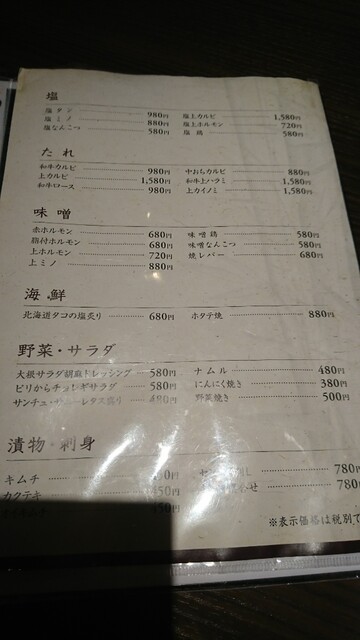 塩
塩タン 980円 塩上カルビ 1,580円
塩ミノ 880円 塩上ホルモン 720円
塩なんこつ 580円 塩鶏 580円
たれ
和牛カルビ 980円 中おちカルビ 880円
上カルビ 1,580円 和牛上ハラミ 1,580円
和牛ロース 980円 上カイノミ 1,580円
味噌
赤ホルモン 680円 味噌鶏 580円
脂付ホルモン 680円 味噌なんこつ 580円
上ホルモン 720円 焼レバー 680円
上ミノ 880円
海鮮
北海道タコの塩炙り 680円 ホタテ焼 880円
野菜・サラダ
大根サラダ胡麻ドレッシング 580円 ナムル 480円
ピリからチョレギサラダ 580円 にんにく焼き 380円
サンチュ・レタス盛り 480円 野菜焼き 500円
漬物・刺身
キムチ 780円
カクテキ 450円 780円
450円
※表示価格は税別で